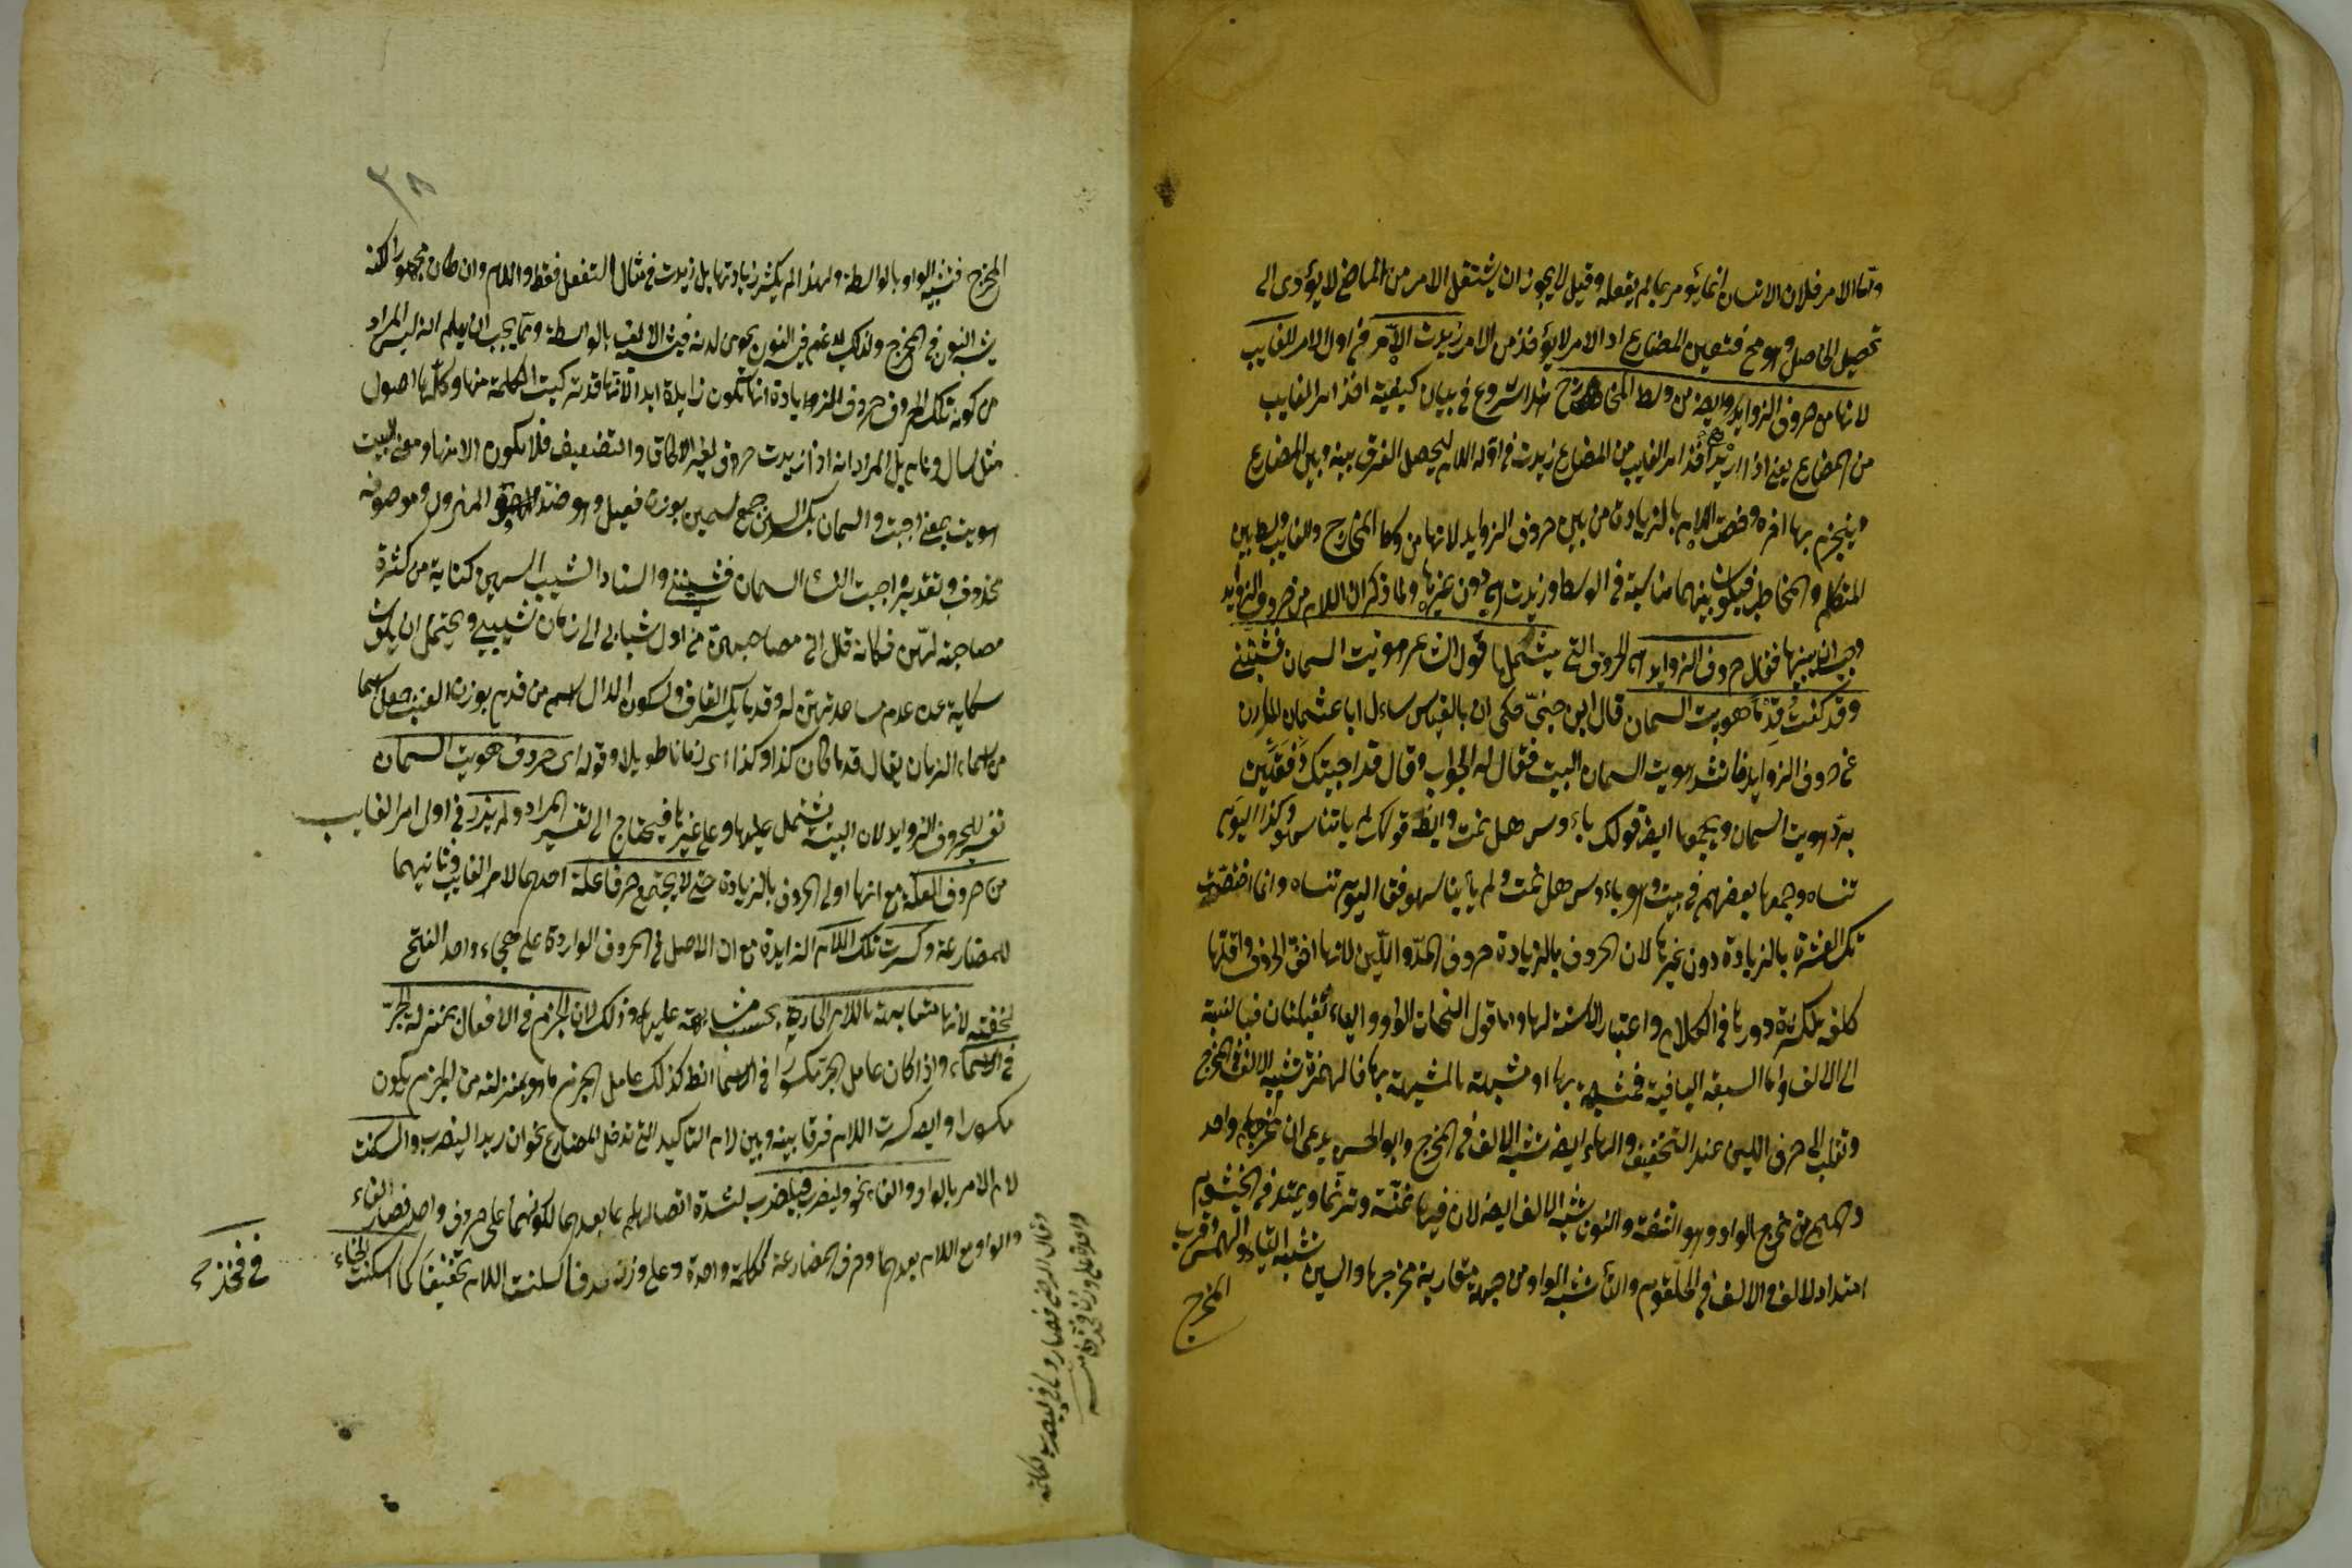 واما الامر فلان الانسان انما يؤمر بما لم يفعله وقيل لا يجوز ان يشتق الامر من الماضى لا يؤدى الى
تحصيل الحاصل وهو مح فتعين المضارع اذ الامر لا يؤخذ من الامر زيدت اللام فى اول الامر الغايب
لانها من حروف الزوايد وايضا من وسط المخارج هذا شروع فى بيان كيفية اخذ امر الغايب
من المضارع يعنى اذا اريد اخذ امر الغايب من المضارع زيدت فى اوله اللام ليحصل الفرق بينه وبين المضارع
وينجزم بها اخره وخصت اللام بالزيادة من بين حروف الزوايد لانها من وسط المخارج والغايب وسط بين
المتكلم والمخاطب فيكون بينهما مناسبة فى الوسط وزيدت هى دون غيرها ولما ذكر ان اللام من حروف الزوايد
وجب ان يبينها فقال حروف الزوايد اى الحروف التى يشتملها قول الشاعر هويت السمان فشيبننى
وقد كنت قدما هويت السمان قال ابن جنى حكى ان ابا العباس سأل ابا عثمان المازنى
عن حروف الزوايد فانشد هويت السمان البيت فقال له الجواب وقال قد اجبتك دفعتين
يريد هويت السمان ويجمعها ايضا قولك يا اوس هل نمت وايضا قولك لم ياتنا سهو وكذا اليوم
تنساه وجمعها بعضهم فى بيت وهو يا اوس هل نمت ولم ياتنا سهو فقا اليوم تنساه وانما اختصت
تلك العشرة بالزيادة دون غيرها لان الحروف بالزيادة حروف المد واللين لانها اخف الحروف واقلها
كلفة لكثرة دورها فى الكلام واعتبار الالسنة لها واما قول النحات الواو والياء ثقيلتان فبالنسبة
الى الالف واما السبعة الباقية فمشبهة بها او مشبهة بالمشبهة بها فالهمزة تشبه الالف فى المخرج
وتقلب الى حرف اللين عند التخفيف والهاء ايضا تشبه الالف فى المخرج وابو الحسن يدعى ان مخرجهما واحد
والميم من مخرج الواو وهو الشفة والنون تشبه الالف ايضا لان فيها غنة وترنما ويمتد فى الخيشوم
امتداد الالف فى الحلقوم والتاء تشبه الواو من جهة مقاربة مخرجها والسين تشبه التاء فى الهمس وقرب
المخرج
٣٨
المخرج فتشبه الواو بالواسطة ولهذا لم يكثر زيادتها بل زيدت فى مثال التفعل فقط واللام وان كان مجهورا لكنه
يشبه النون فى المخرج ولذلك يدغم فيه النون نحو من لدنه فيشبه الالف بالواسطة ومما يجب ان يعلم انه ليس المراد
من كون تلك الحروف حروف الزيادة انها تكون زايدة ابدا لانها قد تركبت الكلمة منها وكلها اصول
مثل سال ونام بل المراد انه اذا زيدت حروف لغير الالحاق والتضعيف فلا يكون الا منها ومعنى البيت
هويت بمعنى احببت والسمان بكسر السين جمع سمين بوزن فعيل وهو ضد المهزول وموصوفه
محذوف وتقديره احببت النساء السمان فشيبننى والسناد الشيب اليهن كناية من كثرة
مصاحبته لهن فكانه قال انى مصاحبهن من اول شبابى الى زمان شيبى ويحتمل ان يكون
شكاية عن عدم مساعدتهن له وقدما بكسر القاف وسكون الدال اسم من قدم بوزن العنب جعل اسما
من اسماء الزمان يقال قدما كان كذا وكذا اى زمانا طويلا وقوله اى حروف هويت السمان
تفسير لحروف الزوايد لان البيت يشتمل عليها وعلى غيرها فيحتاج الى تفسير المراد ولم يزد فى اول امر الغايب
من حروف العلة مع انها اولى الحروف بالزيادة حتى لا يجتمع حرفا علة احدهما لامر الغايب وثانيهما
للمضارعة وكسرت تلك اللام الزايدة مع ان الاصل فى الحروف الواردة على هجاء واحد الفتح
لخفته لانها مشابهة باللام الجارة بحسب مشابهة عليها وذلك لان الجزم فى الافعال بمنزلة الجر
فى الاسماء واذا كان عامل الجر مكسورا فى الاسماء فكذلك عامل الجزم ما هو بمنزلته من الجزم يكون
مكسورا وايضا كسرت اللام فرقا بينه وبين لام التاكيد التى تدخل المضارع نحو ان زيدا ليضرب واسكنت
لام الامر بالواو والفاء نحو وليضرب فليضرب لشدة اتصالهما بما بعدهما لكونهما على حرف واحد فصار الفاء
والواو مع اللام بعدهما وحرف المضارعة ككلمة واحدة وعلى وزن فاسكنت اللام تخفيفا كما اسكنت الخاء
فى فخذ